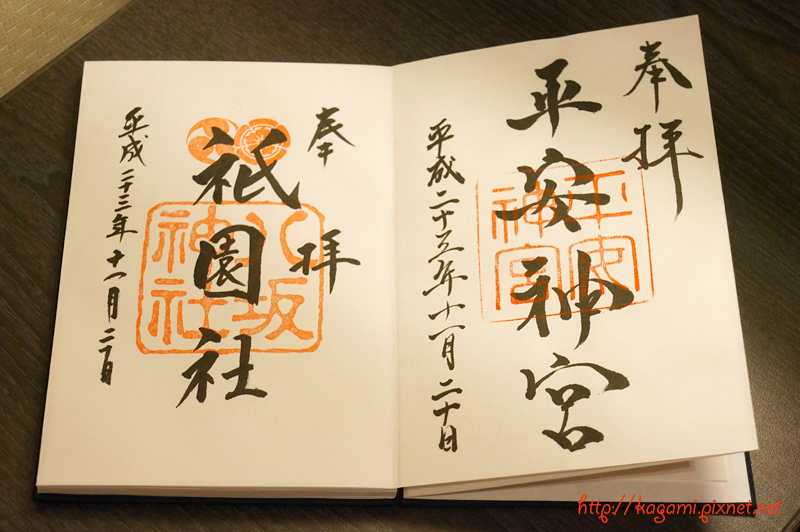 奉拝
平安神宮
平安
神宮
平成二十三年十一月二十日
奉拝
祇園社
八坂
神社
平成二十三年十一月
http://kagami.pixnet.net